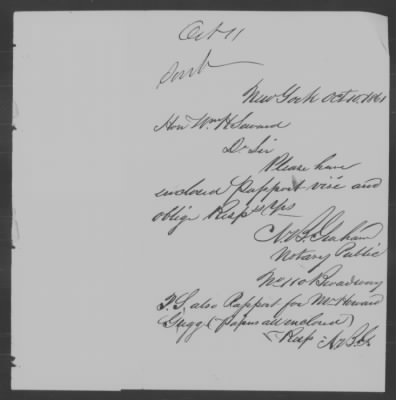 Oct 11
New York Oct 10. 1861
Hon Wm H Seward
Dr Sir
Please have
enclosed Passport visé and
oblige Resply Yrs
A. B. Graham
Notary Public
No 110 Broadway
P.S. also Passport for Mr Howard
(Papers all enclosed)
Resp